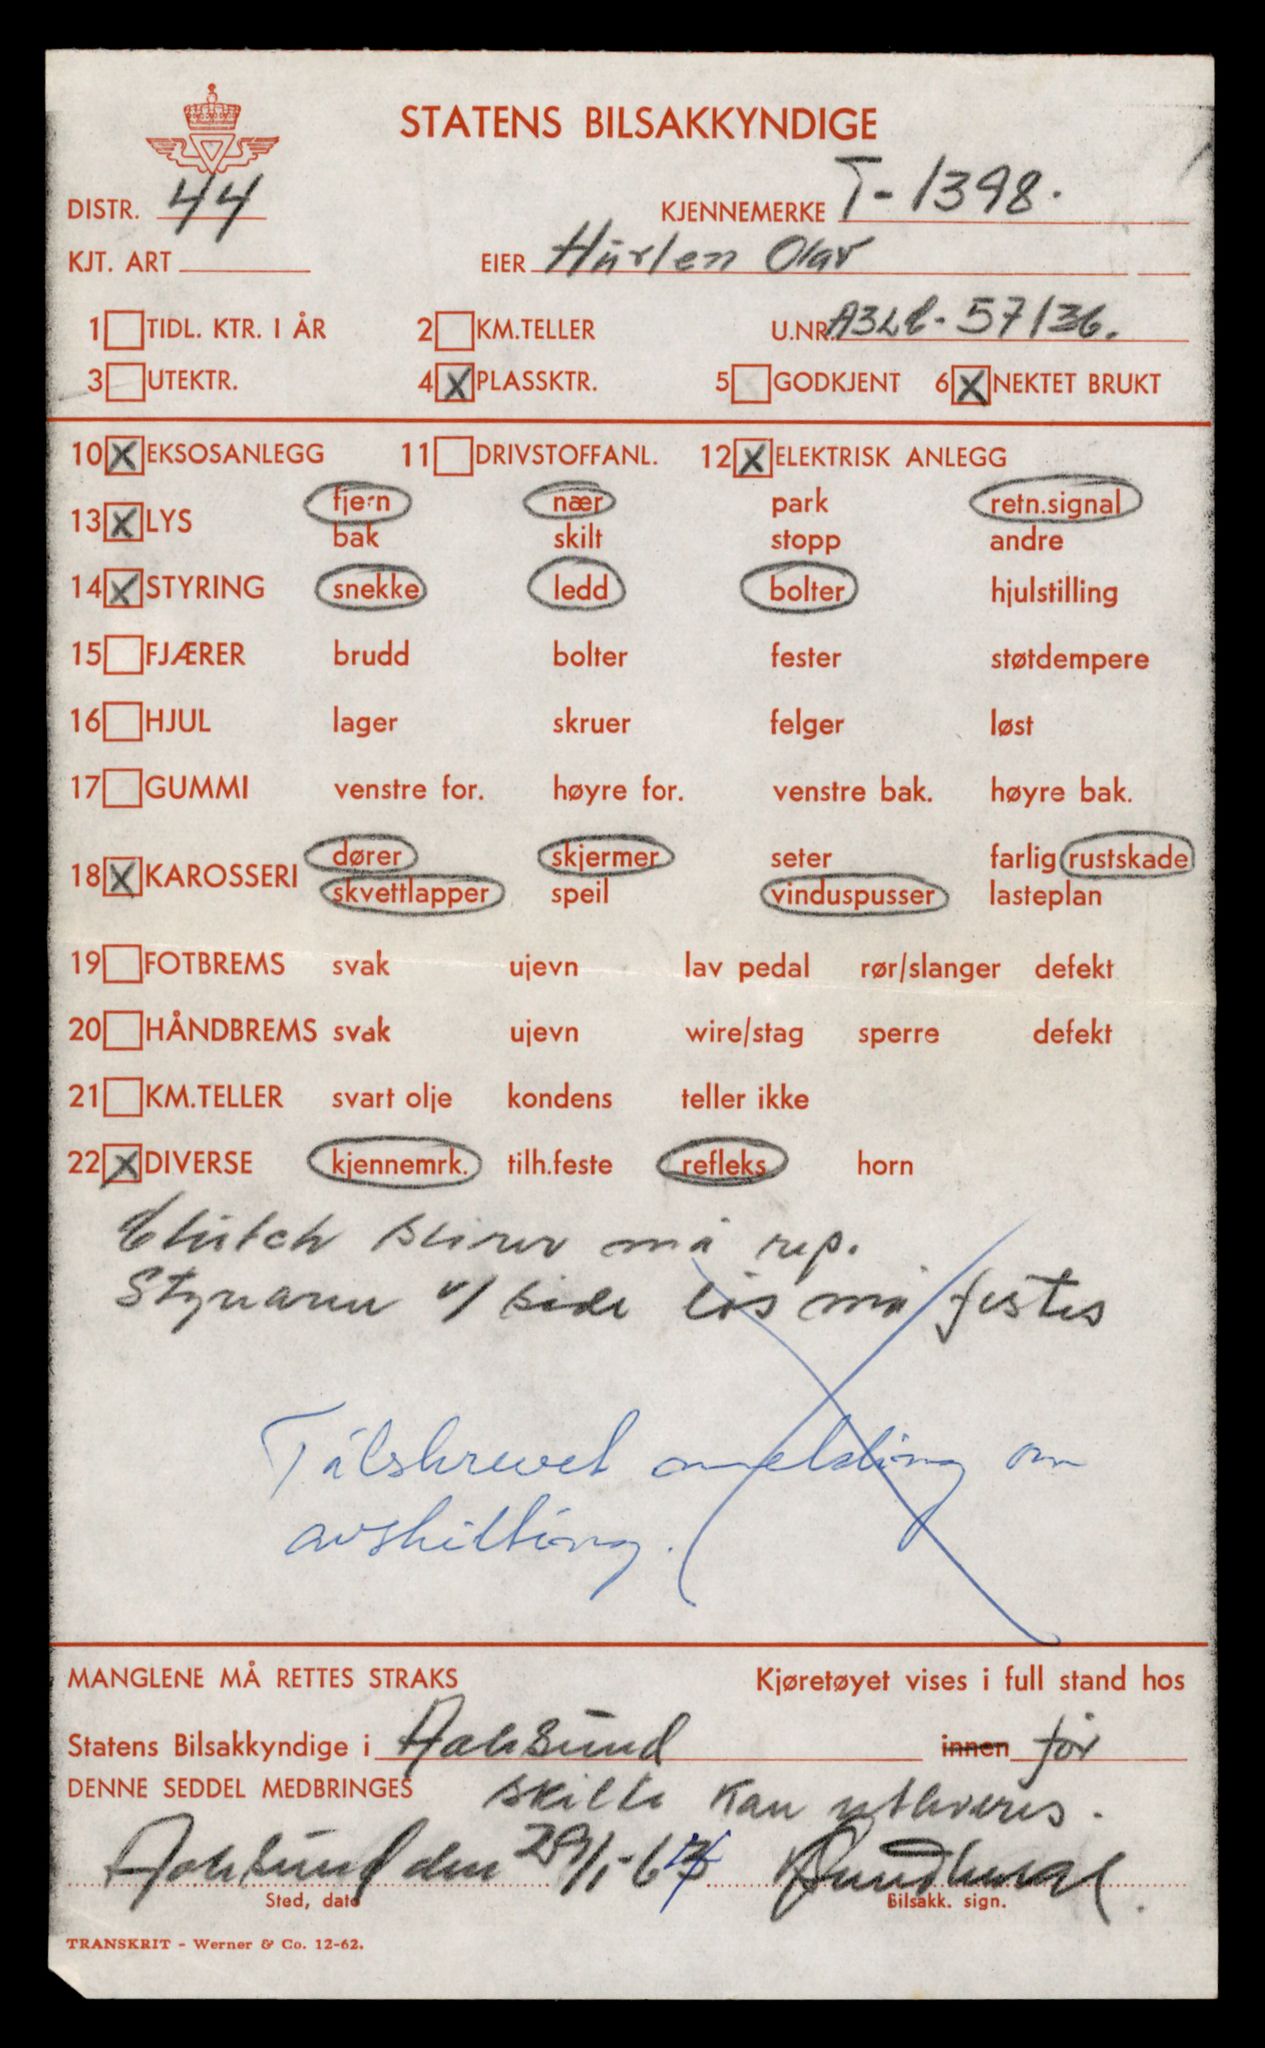 STATENS BILSAKKYNDIGE
DISTR. 44 KJENNEMERKE T-1398.
KJT. ART EIER Hurlen Olav
1 TIDL. KTR. I ÅR 2 KM.TELLER U.NR. A3LC-57136.
3 UTEKTR. 4 X PLASSKTR. 5 GODKJENT 6 X NEKTET BRUKT
10 X EKSOSANLEGG 11 DRIVSTOFFANL. 12 X ELEKTRISK ANLEGG
13 X LYS fjern nær park retn.signal
bak skilt stopp andre
14 X STYRING snekke ledd bolter hjulstilling
15 FJÆRER brudd bolter fester støtdempere
16 HJUL lager skruer felger løst
17 GUMMI venstre for. høyre for. venstre bak. høyre bak.
18 X KAROSSERI dører skjermer seter farlig rustskade
skvettlapper speil vinduspusser lasteplan
19 FOTBREMS svak ujevn lav pedal rør/slanger defekt
20 HÅNDBREMS svak ujevn wire/stag sperre defekt
21 KM.TELLER svart olje kondens teller ikke
22 X DIVERSE kjennemrk. tilh.feste refleks horn
Clutch slirer må rep.
Styrarm v/ side løs må festes
Tilskrevet anmelding om
avskilting.
MANGLENE MÅ RETTES STRAKS Kjøretøyet vises i full stand hos
Statens Bilsakkyndige i Aalesund innen før
DENNE SEDDEL MEDBRINGES skilte kan utleveres.
Aalesund den 29/1-64
Sted, dato Bilsakk. sign.
TRANSKRIT - Werner & Co. 12-62.